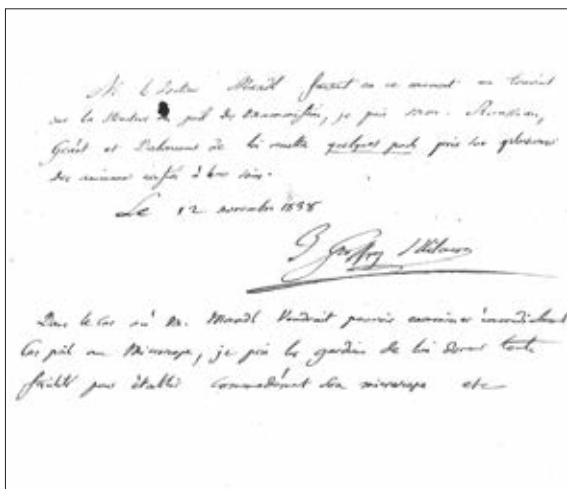 M. le Docteur Mandl faisant en ce moment un travail
sur la structure du poil des Mammifères, je prie Mrs. Rousseau,
et de lui remettre quelques poils pris sur
des animaux confiés à leur soin.
Le 12 novembre 1838
Geoffroy St Hilaire
Dans le cas où M. Mandl voudrait pouvoir examiner immédiatement
ces poils au Microscope, je prie les gardiens de lui donner toute
facilité pour établir commodément son microscope etc